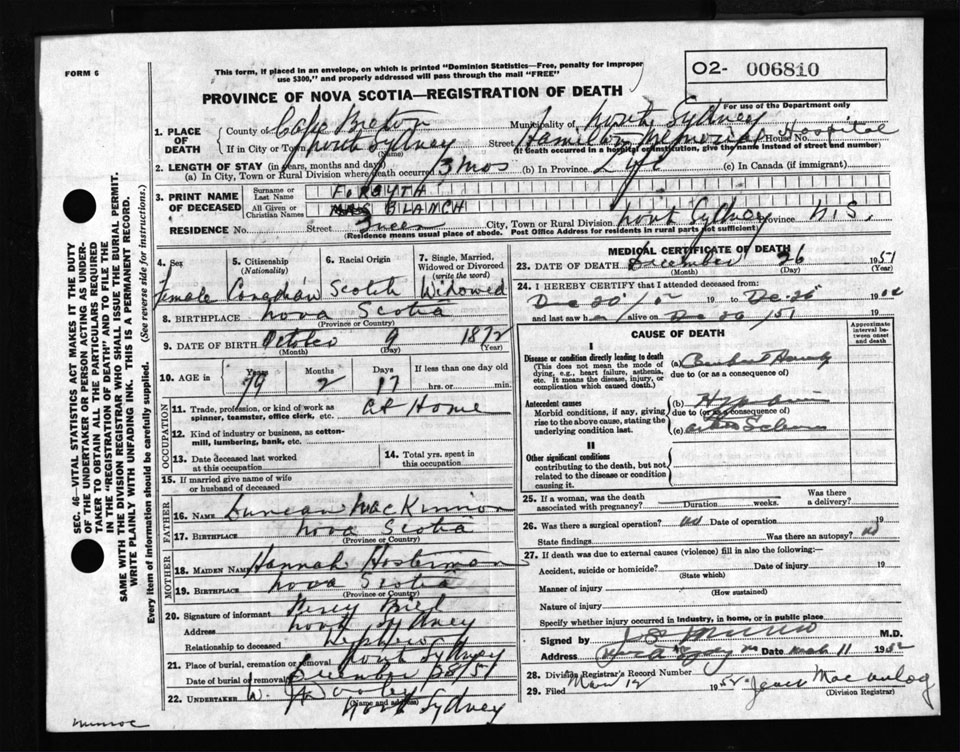 FORM 6
This form, if placed in an envelope, on which is printed "Dominion Statistics—Free, penalty for improper
use $300," and properly addressed will pass through the mail "FREE"
O2- 006810
PROVINCE OF NOVA SCOTIA—REGISTRATION OF DEATH
For use of the Department only
1. PLACE OF DEATH
County of Cape Breton Municipality of North Sydney
If in City or Town North Sydney (Name) Street Hamilton Memorial House No. Hospital
(If death occurred in a hospital or institution, give the name instead of street and number)
2. LENGTH OF STAY (in years, months and days)
(a) In City, Town or Rural Division where death occurred 3 mos (b) In Province Life (c) In Canada (if immigrant)
3. PRINT NAME OF DECEASED
Surname or Last Name FORSYTH
All Given or Christian Names MRS BLANCH
RESIDENCE No. Street Queen City, Town or Rural Division North Sydney Province N.S.
(Residence means usual place of abode. Post Office Address for residents in rural parts not sufficient)
4. Sex Female
5. Citizenship (Nationality) Canadian
6. Racial Origin Scotch
7. Single, Married, Widowed or Divorced (write the word) Widowed
8. BIRTHPLACE Nova Scotia
(Province or Country)
9. DATE OF BIRTH October 9 1872
(Month) (Day) (Year)
10. AGE in Years 79 Months 2 Days 17 If less than one day old hrs. or min.
OCCUPATION
11. Trade, profession, or kind of work as spinner, teamster, office clerk, etc. at Home
12. Kind of industry or business, as cotton-mill, lumbering, bank, etc.
13. Date deceased last worked at this occupation
14. Total yrs. spent in this occupation
15. If married give name of wife or husband of deceased
FATHER
16. NAME Duncan MacKinnon
17. BIRTHPLACE Nova Scotia
(Province or Country)
MOTHER
18. MAIDEN NAME Hannah
19. BIRTHPLACE Nova Scotia
(Province or Country)
20. Signature of informant Percy
Address North Sydney
Relationship to deceased Nephew
21. Place of burial, cremation or removal North Sydney
Date of burial or removal December 28/51
22. UNDERTAKER W.
(Name and address)
North Sydney
MEDICAL CERTIFICATE OF DEATH
23. DATE OF DEATH December 26 1951
(Month) (Day) (Year)
24. I HEREBY CERTIFY that I attended deceased from:
Dec 20 19 to Dec 19
and last saw h alive on Dec /51
CAUSE OF DEATH
Approximate interval between onset and death
I
Disease or condition directly leading to death
(This does not mean the mode of dying, e.g., heart failure, asthenia, etc. It means the disease, injury, or complication which caused death.)
(a)
due to (or as a consequence of)
Antecedent causes
Morbid conditions, if any, giving rise to the above cause, stating the underlying condition last.
(b)
due to (or as a consequence of)
(c)
II
Other significant conditions
contributing to the death, but not related to the disease or condition causing it.
25. If a woman, was the death associated with pregnancy? Duration weeks. Was there a delivery?
26. Was there a surgical operation? no Date of operation 19
State findings Was there an autopsy? no
27. If death was due to external causes (violence) fill in also the following:—
Accident, suicide or homicide? Date of injury 19
(State which)
Manner of injury
(How sustained)
Nature of injury
Specify whether injury occurred in industry, in home, or in public place
Signed by M.D.
Address Date March 11 1952
28. Division Registrar's Record Number
29. Filed Mar 12 1952
(Division Registrar)
SEC. 46—VITAL STATISTICS ACT MAKES IT THE DUTY
OF THE UNDERTAKER OR PERSON ACTING AS UNDER-
TAKER TO OBTAIN ALL THE PARTICULARS REQUIRED
IN THE "REGISTRATION OF DEATH" AND TO FILE THE
SAME WITH THE DIVISION REGISTRAR WHO SHALL ISSUE THE BURIAL PERMIT.
WRITE PLAINLY WITH UNFADING INK. THIS IS A PERMANENT RECORD.
Every item of information should be carefully supplied. (See reverse side for instructions.)
Munroe